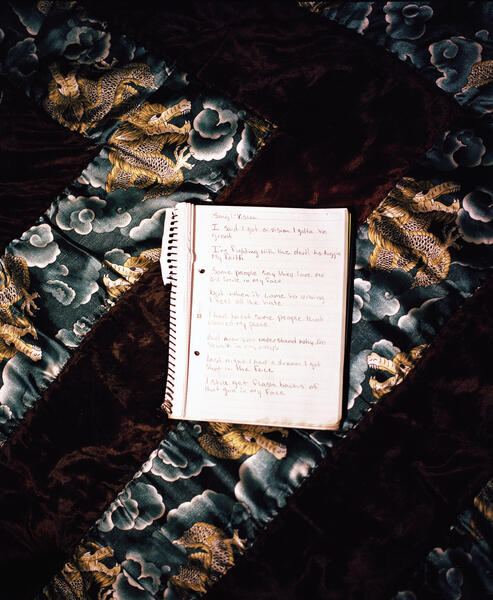 Song: Vision
I said I got a vision I gotta be
great
I'm fighting with the devil he
my faith
Some people say they love me
in my face
but when it come to
I feel all the hate
I had to cut some people that
my
And now you understand why I'm
stuck in my ways
Last night I had a dream I got
shot in the face
I still get flash backs of
that gun in my face